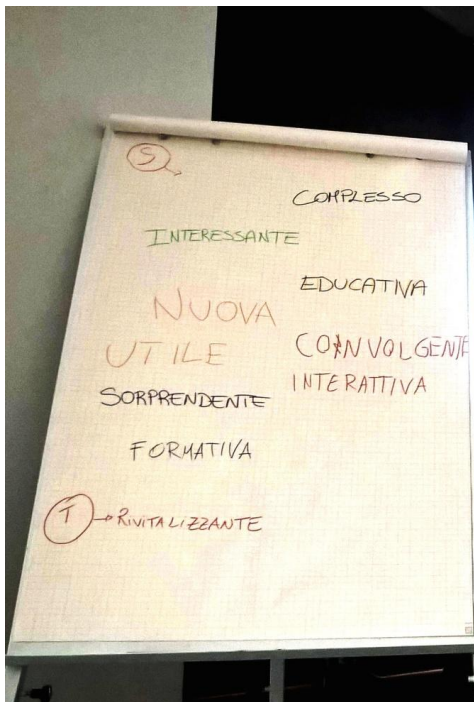 S →
COMPLESSO
INTERESSANTE
EDUCATIVA
NUOVA
UTILE
COINVOLGENTE
INTERATTIVA
SORPRENDENTE
FORMATIVA
T → RIVITALIZZANTE